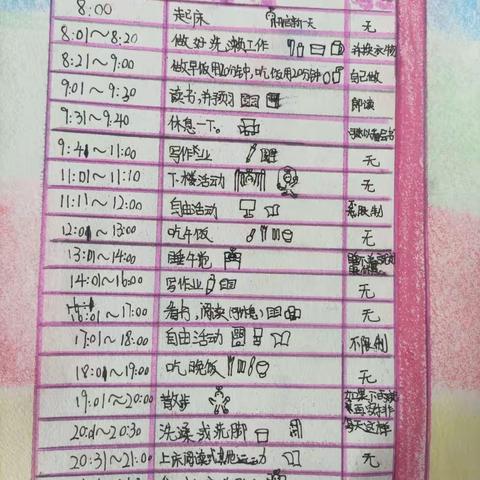 8:00 起床 开启新一天 无
8:01～8:20 做好洗漱工作 补换衣物
8:21～9:00 做早饭用20分钟,吃饭用20分钟 自己做
9:01～9:30 读书,并预习 朗读
9:31～9:40 休息一下。
9:41～11:00 写作业 无
11:01～11:10 下楼活动 无
11:11～12:00 自由活动 无限制
12:01～13:00 吃午饭 无
13:01～14:00 睡午觉
14:01～16:00 写作业 无
16:01～17:00 看书,阅读 无
17:01～18:00 自由活动 不限制
18:01～19:00 吃晚饭 无
19:01～20:00 散步
20:01～20:30 洗澡或洗脚 每天这样
20:31～21:00 上床阅读或其他运动 无